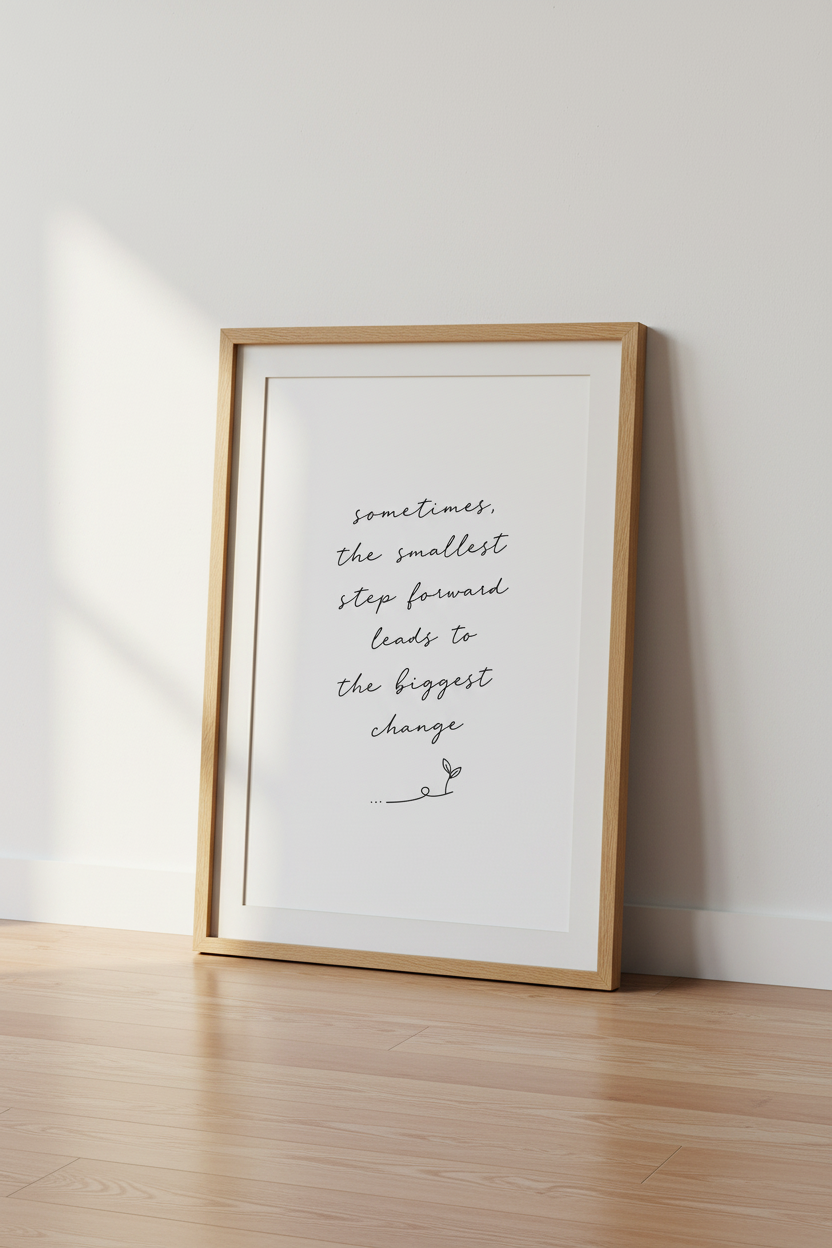 sometimes,
the smallest
step forward
leads to
the biggest
change
...